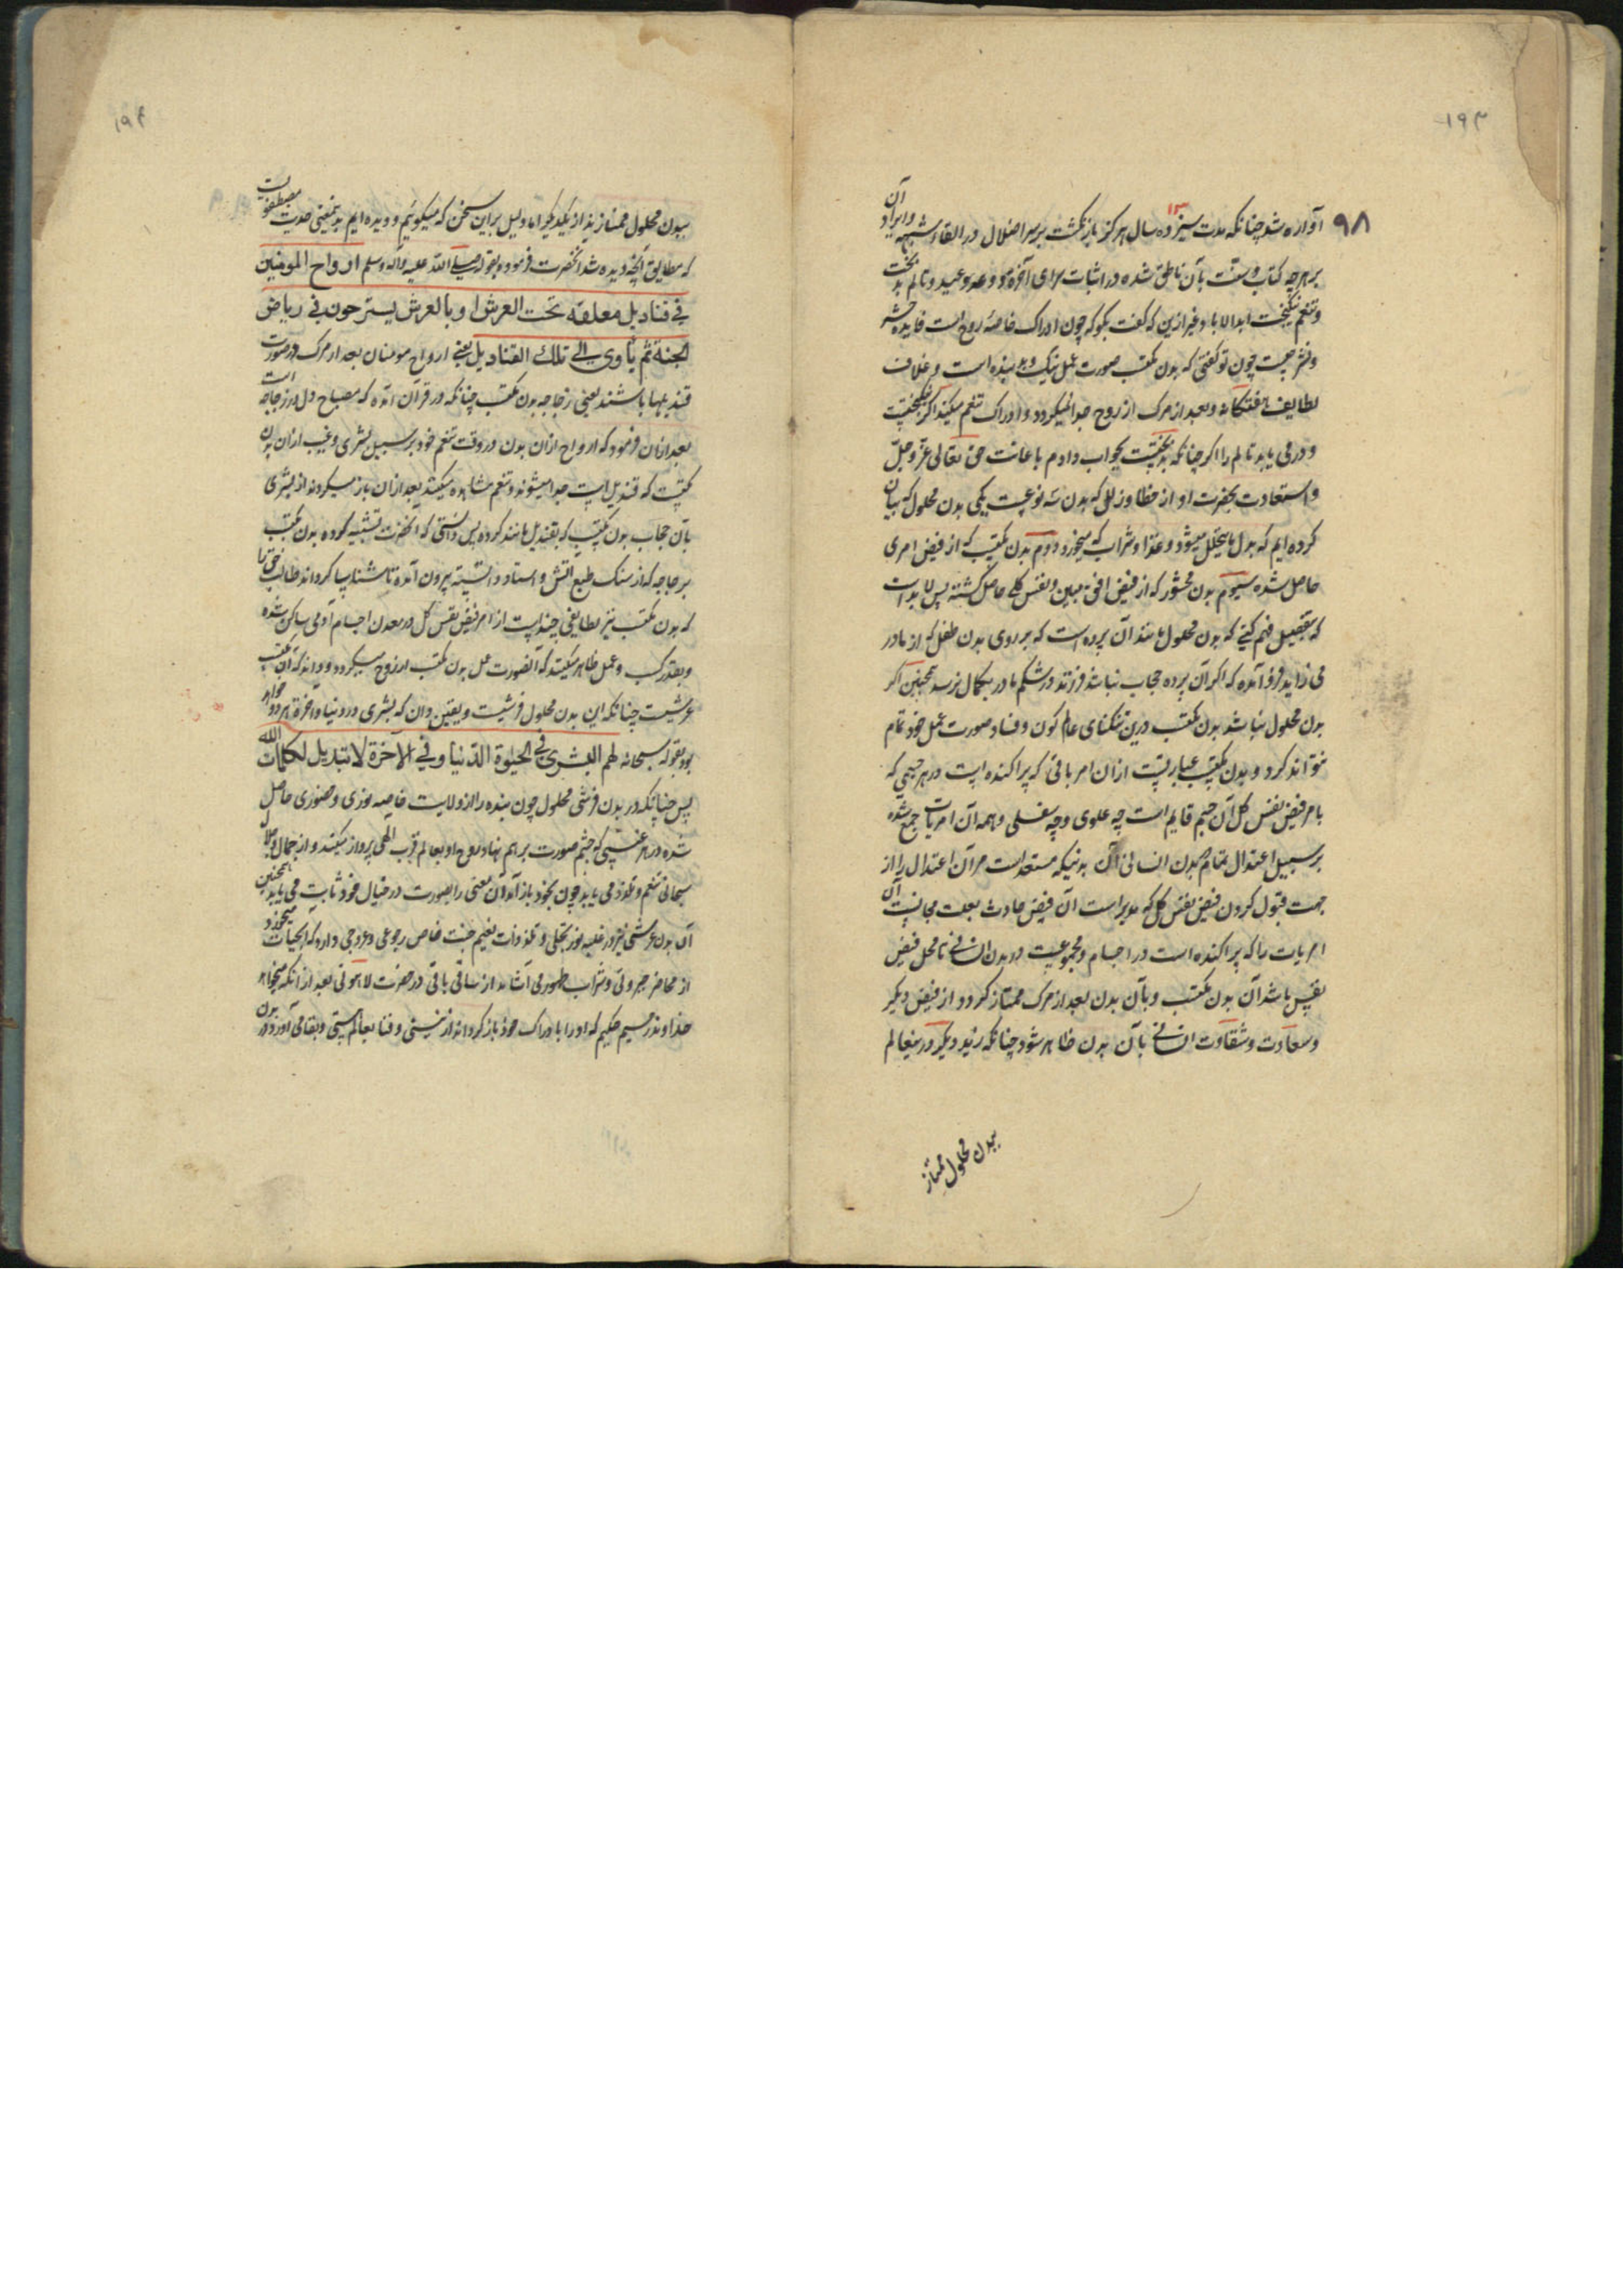 ۱۹۳
۹۸
آواره شد چنانکه مدت سیزده سال هرگز بازنگشت بر سر اضلال در القاء شبهه و ایراد آن
۱۳
بر هر چه کتاب و سنّت بآن ناطق شده در اثبات سرای آخرة و وعد و وعید و تالم بدبخت
و تنعم نیکبخت ابدالاباد و غیر ازین که گفت بگو که چون ادراک خاصهٔ روح است فایده حشر
و نشر چیست چون تو گفتی که بدن مکتسب صورت عمل نیک و بد بنده است و غلاف
لطایف هفتگانه و بعد از مرگ از روح جدا نمیگردد و ادراک تنعم میکند اگر نیکبختست
و در می یابد تالم را اگر چنانکه بدبختست بجواب دادم باعانت حق تعالی عزّ و جلّ
و استعاذت بحضرت او از خطا و زلل که بدن سه نوعست یکی بدن محلول که بیان
کرده ایم که بدل مایتحلل میشود و غذا و شراب که میخورد دوم بدن مکتسب که از فیض امری
حاصل شده سیوم بدن محشور که از فیض افق مبین و نفس کلی حاصل گشته پس لابد است
که بتفصیل فهم کنی که بدن محلول مانند آن پرده است که بر روی بدن طفل که از مادر
می زاید فرو آمده که اگر آن پرده حجاب نباشد فرزند در شکم مادر بکمال نرسد همچنین اگر
بدن محلول نباشد بدن مکتسب درین تنگنای عالم کون و فساد صورت عمل خود تمام
نتواند کرد و بدن مکتسب عبارتست ازان امر باقی که پراکنده است در هر جسمی که
بامر فیض نفس کل آن جسم قایم است چه علوی و چه سفلی و همه آن امریات جمع شده
بر سبیل اعتدال تمام ببدن انسانی آن بدنیکه مستعد است مر آن اعتدال را از
جهت قبول کردن فیض نفس کل که مدبر است آن فیض حادث بعلت مجانست آن
امریات را که پراکنده است در اجسام و مجموعست در بدن انسانی تا محل فیض
نفس باشد آن بدن مکتسب و بآن بدن بعد از مرگ ممتاز گردد از فیض دیگر
و سعادت و شقاوت انسانی بآن بدن ظاهر شود چنانکه زید و بکر درینعالم
ببدن محلول ممتاز
۱۹۴
ببدن محلول ممتازند از یکدیگر اما دلیل براین سخن که میگوئیم و دیده ایم بدینمعنی حدیث مصطفویست
که مطابق آنچه دیده شد آنحضرت فرمود و بقوله صلی الله علیه وآله وسلم ارواح المومنین
فی قنادیل معلقة تحت العرش او بالعرش یسترحون فی ریاض
الجنة ثم تأوی الی تلک القنادیل یعنی ارواح مومنان بعد از مرگ در صورت
قندیلها باشند یعنی زجاجه بدن مکتسب چنانکه در قرآن آمده که مصباح دل در زجاجه است
بعد ازان فرمود که ارواح ازان بدن در وقت تنعم خود بر سبیل بشری و غیب ازان بدن
مکتسب که قندیل است جدا میشوند و تنعم مشاهده میکنند بعد ازان باز میگردند از بشری
بآن حجاب بدن مکتسب که بقندیل مانند کرده پس دانستی که آنحضرت تشبیه کرده بدن مکتسب
بزجاجه که از سنگ بطبع آتش و استاد دانسته بیرون آمده تا شناسا گرداند طالب حق را
که بدن مکتسب نیز لطایفی چند است از امر فیض نفس کل در معدن اجسام آدمی ساکن شده
و بقدر کسب و عمل ظاهر میکنند که آنصورت عمل بدن مکتسب از روح میگردد و داند که آن مکتسب
عرشیست چنانکه این بدن محلول فرشیست و یقین دان که بشری در دنیا و آخرة هر دو خواهد
بود بقوله سبحانه لهم البشری فی الحیوة الدنیا وفی الآخرة لا تبدیل لکلمات الله
پس چنانکه در بدن فرشی محلول چون بنده را از ولایت خاصه نوری و حضوری حاصل
شده در هر غیبی که چشم صورت بر هم نهاد روح او بعالم قرب الهی پرواز میکند و از جمال و جلال
سبحانی تنعم و تلذذ می یابد چون بخود باز آمد آن معنی را بصورت در خیال خود ثابت می یابد همچنین
آن بدن عرشی نیز در غلبه نور تجلی و تلذذات نعیم جنت خاص رجوعی و عروجی دارد که الحیات میخورد
از محاضر جبروتی و شراب طهور می آشامد از ساقی باقی در حضرت لاهوتی بعد از آنکه میخواهد
خداوند رحیم حکیم که او را بادراک خود باز گرداند از نیستی و فنا بعالم هستی و بقا می آورد در بدن